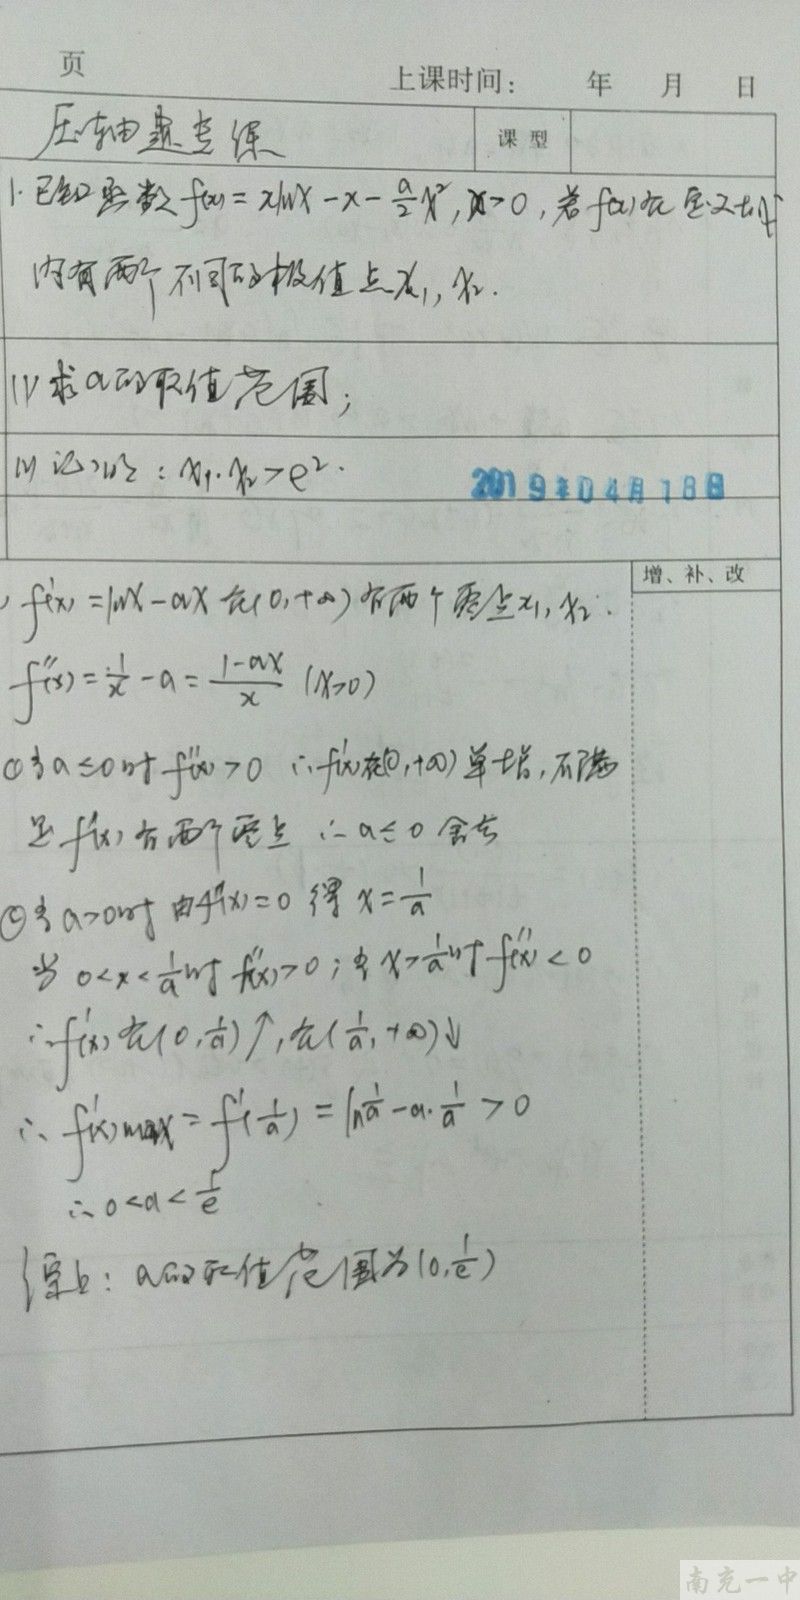 页
上课时间： 年 月 日
压轴题专练 课型
1. 已知函数 f(x) = xlnx - x - a/2 x², x>0, 若 f(x) 在定义域
内有两个不同的极值点 x₁, x₂.
(1) 求 a 的取值范围;
(2) 证明: x₁·x₂ > e².
2019年04月18日
增、补、改
f'(x) = lnx - ax 在(0,+∞)有两个零点 x₁, x₂.
f''(x) = 1/x - a = (1-ax)/x (x>0)
①当 a≤0 时 f''(x) > 0 ∴ f'(x)在(0,+∞)单增, 不满
足 f'(x) 有两个零点 ∴ a≤0 舍去
②当 a>0 时 由 f''(x)=0 得 x = 1/a
当 0<x<1/a 时 f''(x)>0; 当 x>1/a 时 f''(x)<0
∴ f'(x) 在(0, 1/a)↑, 在(1/a, +∞)↓
∴ f'(x)max = f'(1/a) = ln 1/a - a·1/a > 0
∴ 0<a<1/e
综上: a的取值范围为(0, 1/e)
南充一中